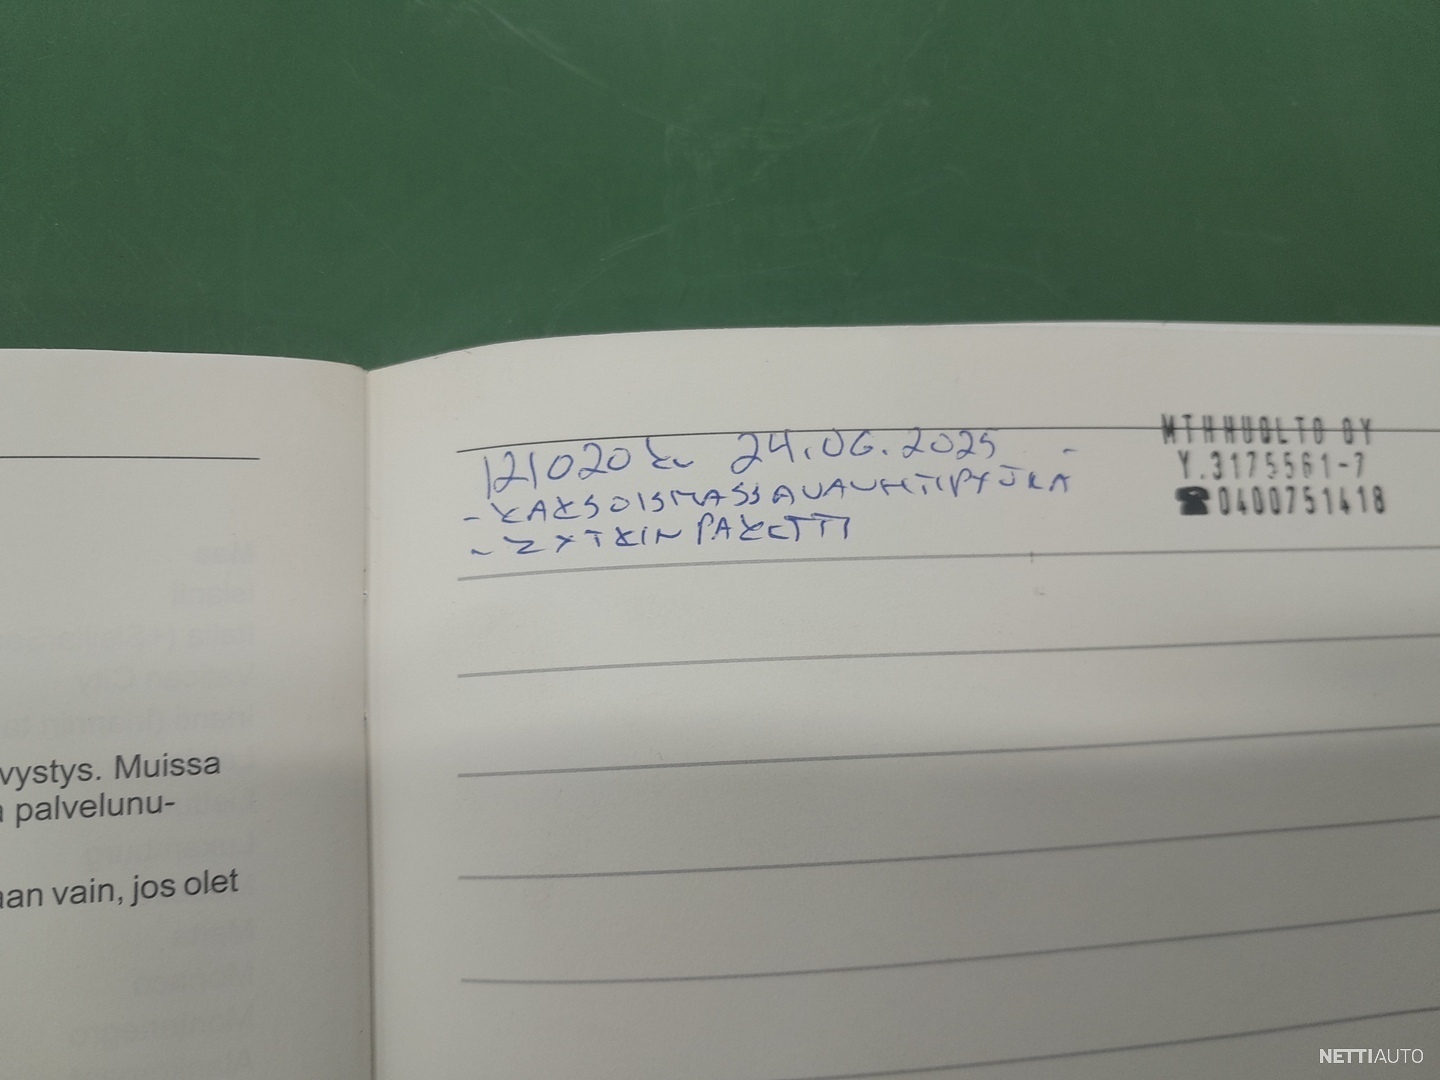 121020 km 24.06.2025
- KAKSOISMASSAVAUHTIPYÖRÄ
- KYTKINPAKETTI
MTHHUOLTO OY
Y.3175561-7
☎0400751418
vystys. Muissa
a palvelunu-
aan vain, jos olet
NETTIAUTO